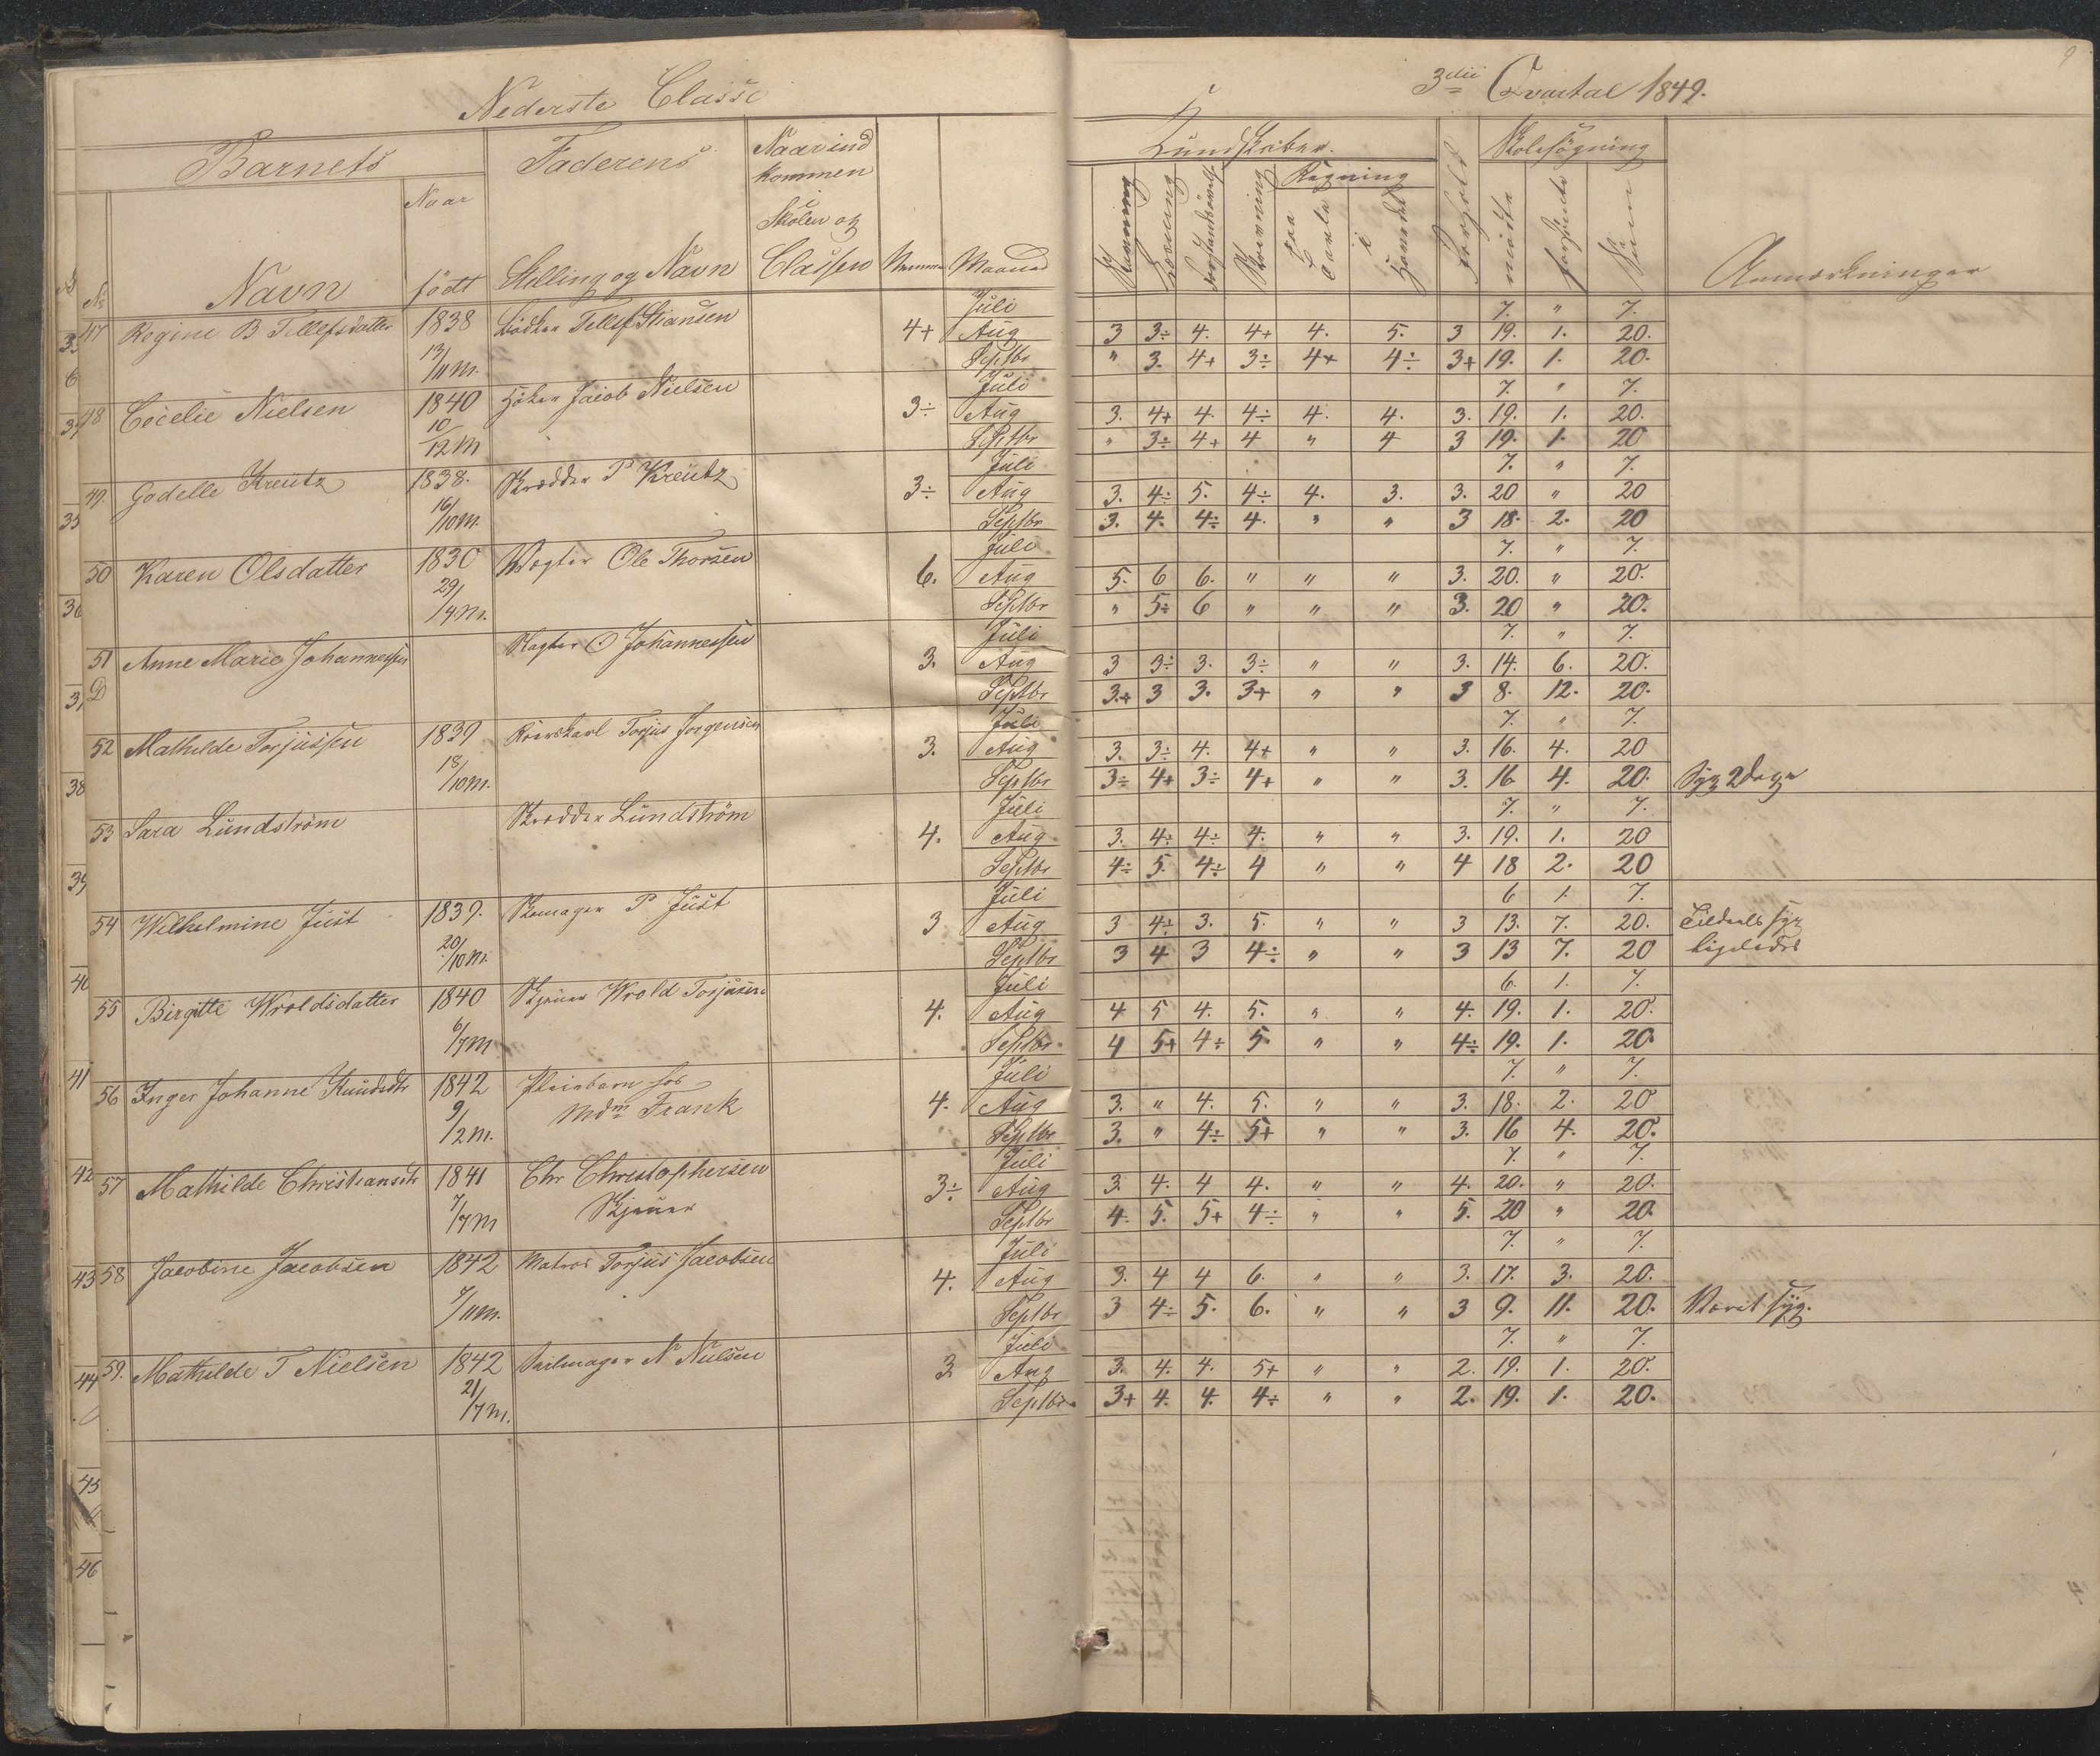 Nederste Classe
3die Qvartal 1849.
9
Barnets
Faderens
Naar ind
kommen
Skolen og
Classen
Naar
født
No
Navn
Stilling og Navn
Numer
Maaned
Kundskaber.
Regning
paa Tavle
i Hovedet
Skolesøgning
mødte
forsømte
Sum
Læsning
Skrivning
Forhold
Anmærkninger
Juli 7. " 7.
47 Regine B Tellefsdatter 1838 Tellef Stiansen 4+ Aug 3 3÷ 4. 4+ 4. 5. 3 19. 1. 20.
13/11 m. Septbr " 3. 4+ 3÷ 4+ 4÷ 3+ 19. 1. 20.
Juli 7. " 7.
48 Cecelie Nielsen 1840 Jacob Nielsen 3÷ Aug 3. 4+ 4. 4÷ 4. 4. 3. 19. 1. 20.
10/12 m Septbr " 3÷ 4+ 4 " 4 3 19. 1. 20
Juli 7. " 7.
49. Godelle Kreutz 1838. Skrædder P Kreutz 3÷ Aug 3. 4÷ 5. 4÷ 4. 3. 3. 20 " 20
16/10 m. Septbr 3. 4. 4÷ 4. " " 3 18. 2. 20
Juli 7. " 7.
50 Karen Olsdatter 1830 Vægter Ole Thorsen 6. Aug 5. 6 6. " " " 3. 20. " 20.
29/4 m. Septbr " 5÷ 6 " " " 3. 20 " 20.
Juli 7. " 7.
51 Anne Marie Johannessen O Johannessen 3. Aug 3 3÷ 3. 3÷ " " 3. 14. 6. 20.
D Septbr 3+ 3 3. 3+ " " 3 8. 12. 20.
Juli 7. " 7.
52 Mathilde Torjussen 1839 Torjus Jorgensen 3. Aug 3. 3÷ 4. 4+ " " 3. 16. 4. 20
18/10 m. Septbr 3÷ 4+ 3÷ 4+ " " 3. 16 4. 20. Syg 2 Dage
Juli 7. " 7.
53 Sara Lundström Skrædder Lundström 4. Aug 3. 4÷ 4÷ 4. " " 3. 19. 1. 20
Septbr 4÷ 5. 4÷ 4 " " 4 18 2. 20
Juli 6 1. 7.
54 Wilhelmine Just 1839. Skomager P. Just 3 Aug 3 4÷ 3. 5. " " 3 13. 7. 20. Tildeels syg
20/10 m. Septbr 3 4 3 4÷ " " 3 13 7. 20 ligeledes
Juli 6. 1. 7.
55 Birgitte Wroldsdatter 1840 Wrold Torjusen 4. Aug 4 5 4. 5. " " 4. 19. 1. 20.
6/7 m Septbr 4 5+ 4÷ 5. " " 4÷ 19. 1. 20.
Juli 7. " 7.
56 Inger Johanne Knudsdtr 1842 Pleiebarn hos 4. Aug 3. " 4. 5. " " 3. 18. 2. 20
9/2 m. Mdm Frank Septbr 3. " 4÷ 5+ " " 3. 16 4. 20.
Juli 7. " 7.
57 Mathilde Christiansdtr 1841 Chr Christophersen 3÷ Aug 3. 4. 4 4. " " 4. 20. " 20.
7/7 m Septbr 4. 5. 5+ 4÷ " " 5. 20 " 20.
Juli 7. " 7.
58 Jacobine Jacobsen 1842 Matros Torjus Jacobsen 4. Aug 3. 4 4 6. " " 3. 17. 3. 20.
7/11 m. Septbr 3 4÷ 5. 6. " " 3 9. 11. 20. Været syg.
Juli 7. " 7.
59. Mathilde T Nielsen 1842 Seilmager N Nielsen 3. Aug 3. 4. 4. 5+ " " 2. 19. 1. 20.
21/7 m. Septbr 3+ 4. 4. 4÷ " " 2. 19. 1. 20.
35
36
38
39
40
41
42
43
44
45
46